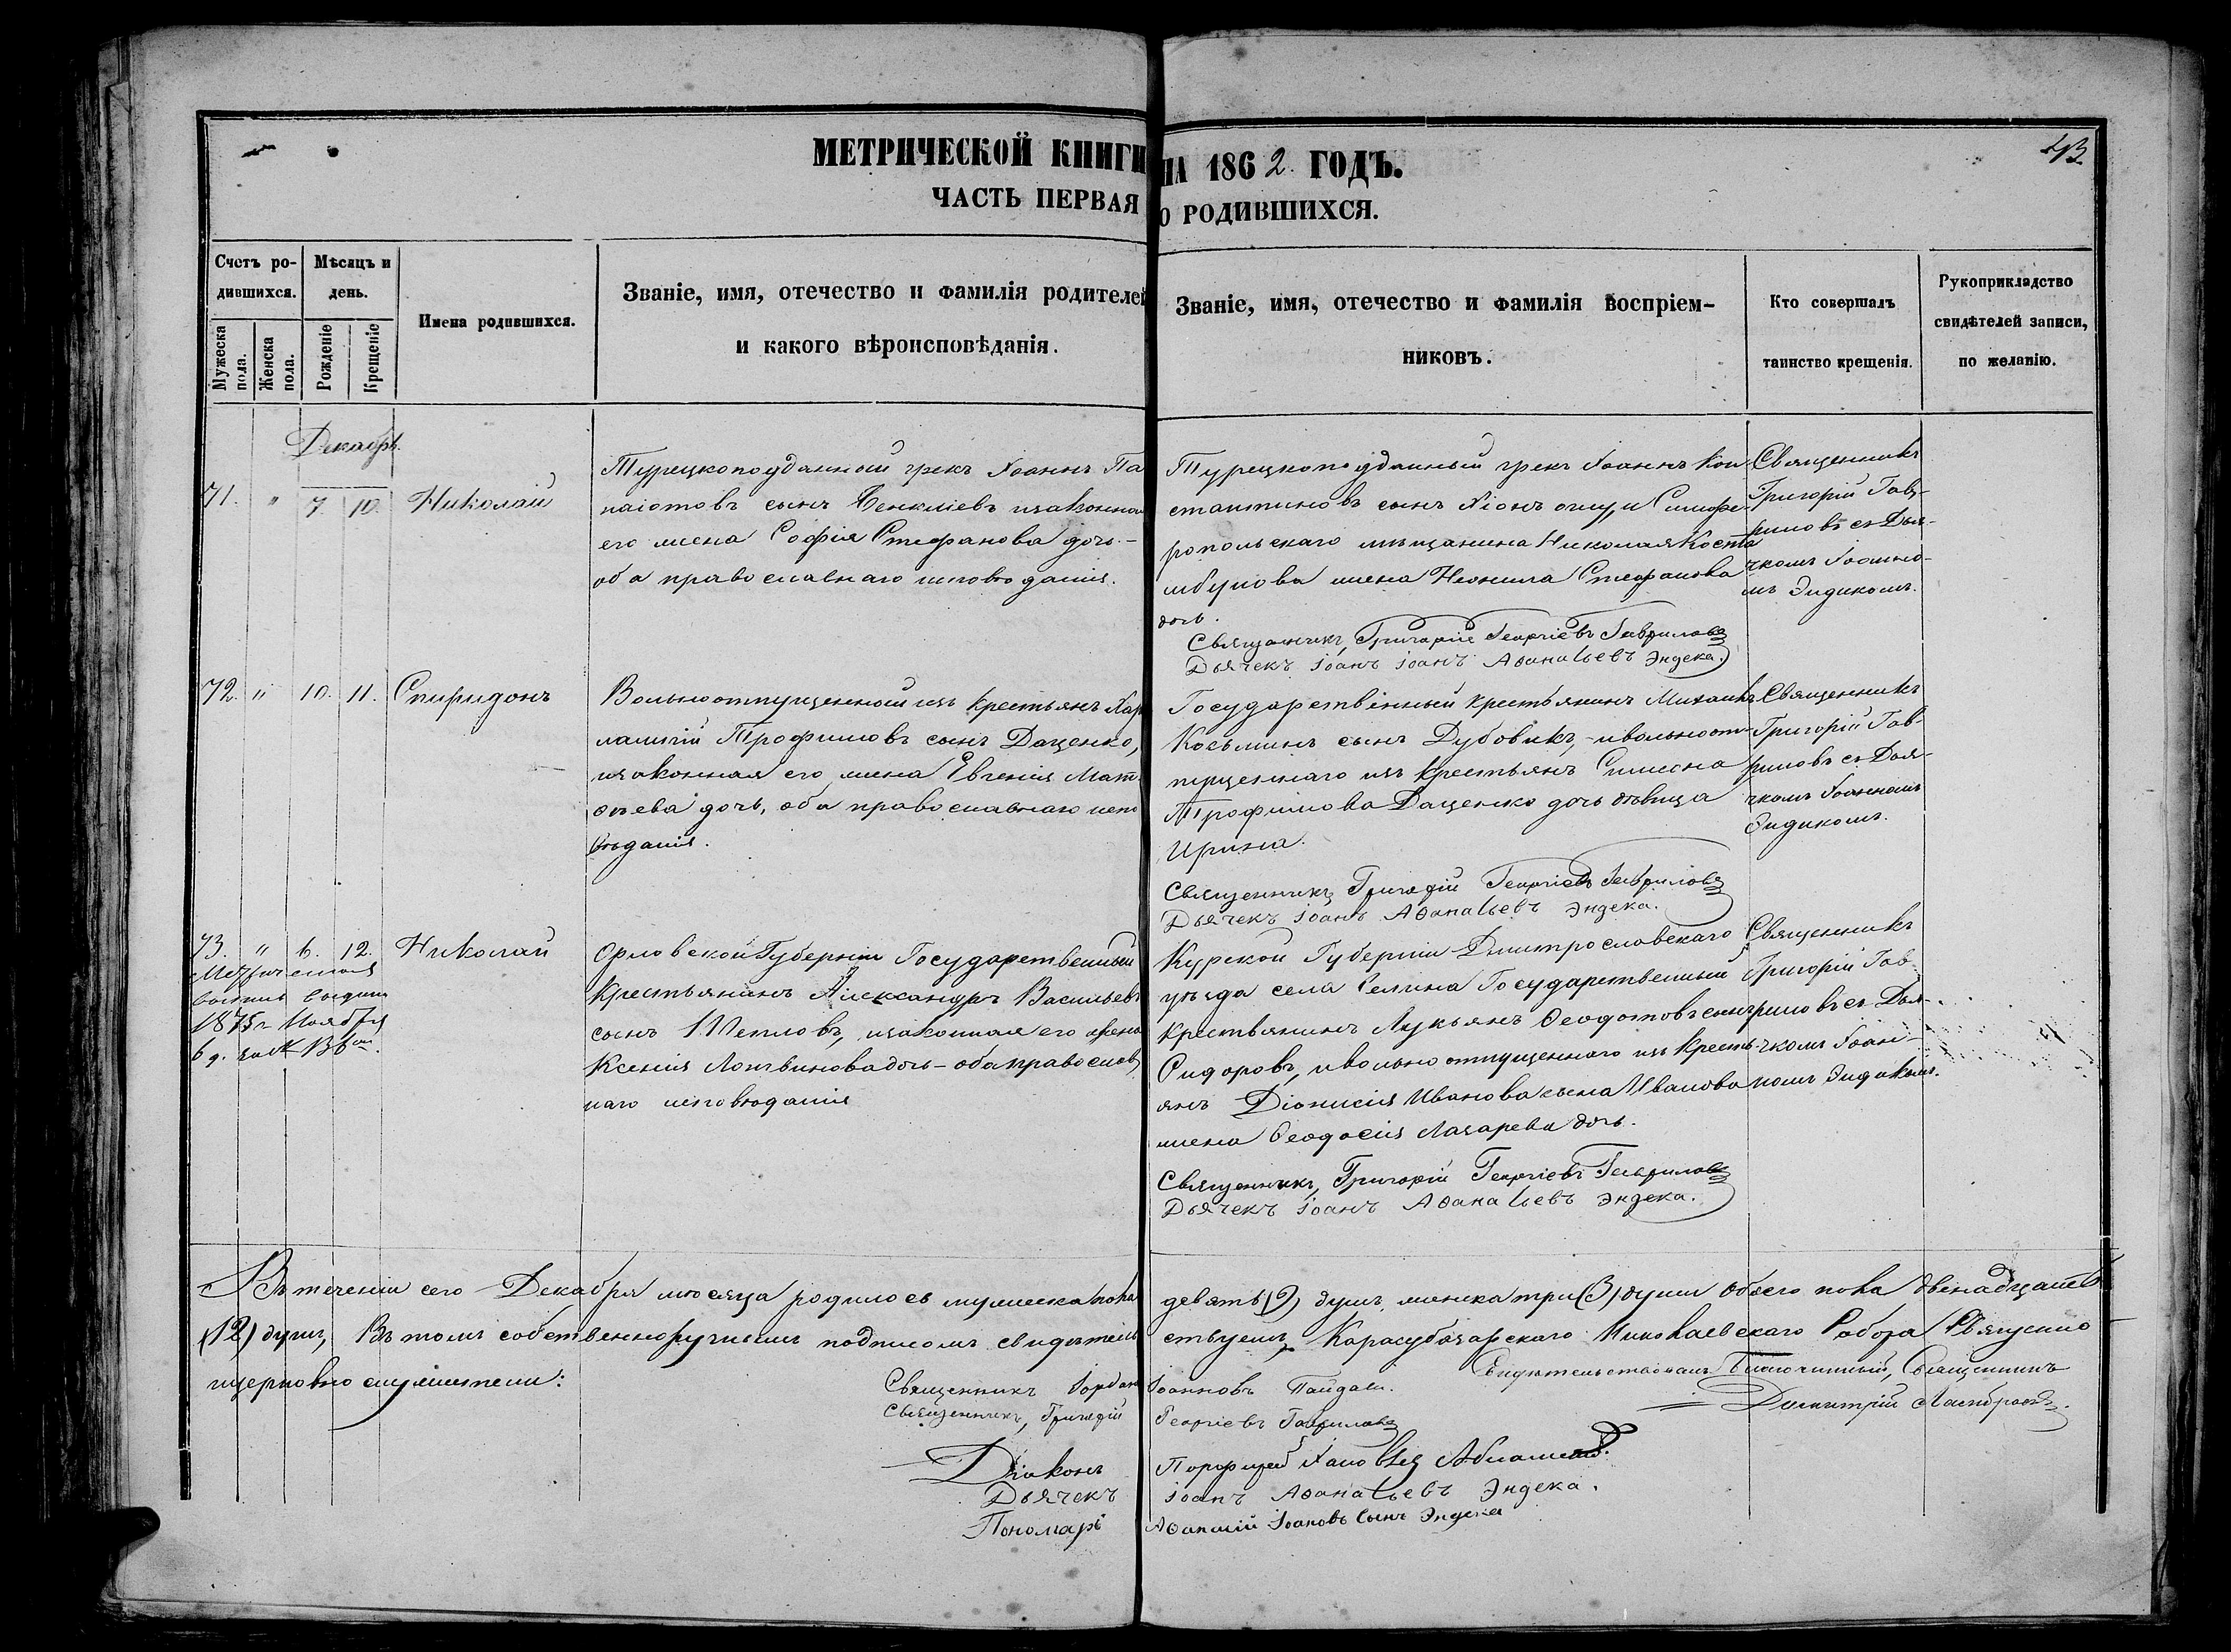 МЕТРИЧЕСКОЙ КНИГИ НА 1862. ГОДЪ.
43
ЧАСТЬ ПЕРВАЯ О РОДИВШИХСЯ.
Счетъ ро-
дившихся.
Мужеска пола.
Женска пола.
Мѣсяцъ и
день.
Рожденіе
Крещеніе
Имена родившихся.
Званіе, имя, отечество и фамилія родителей
и какого вѣроисповѣданія.
Званіе, имя, отечество и фамилія воспріем-
никовъ.
Кто совершалъ
таинство крещенія.
Рукоприкладство
свидѣтелей записи,
по желанію.
Декабрь
71. " 7. 10. Николай
Турецкоподданный грекъ Іоаннъ Па
наіотовъ сынъ изаконная
его жена Софія Стефанова дочь -
оба православнаго исповѣданія.
Турецкоподданный грекъ Іоаннъ Кон
стантиновъ сынъ и Симфе-
ропольскаго мѣщанина Николая
жена Неонила Стефанова
дочь.
Священникъ
Григорій Гав-
риловъ съ Дья-
чкомъ Іоанно-
мъ Эндикомъ.
Священникъ, Григорій Георгіевъ Гавриловъ
Дьячекъ Іоанъ Іоанъ Аѳанасьевъ Эндека.
72. " 10. 11. Спиридонъ
Вольноотпущенный изъ крестьянъ Хар
лампій Трофимовъ сынъ Даценко,
изаконная его жена Евгенія Мат-
ѳѣева дочь, оба православнаго испо
вѣданія.
Государственный крестьянинъ Михаилъ
Косьминъ сынъ Дубовикъ, ивольноот-
пущеннаго изъ крестьянъ Симеона
Трофимова Даценко дочь дѣвица
Ирина.
Священникъ
Григорій Гав-
риловъ съ Дья-
чкомъ Іоанномъ
Эндикомъ.
Священникъ, Григорій Георгіевъ Гавриловъ
Дьячекъ Іоанъ Аѳанасьевъ Эндека.
73. " 6. 12. Николай
1875 г. Ноября
6 д.
Орловской Губерніи Государственный
Крестьянинъ Александръ Васильевъ
сынъ Шепловъ, изаконная его жена
Ксенія Логвинова дочь - оба православ
наго исповѣданія
Курской Губерніи Дмитрославскаго
уѣзда села Селина Государственный
крестьянинъ Лукьянъ Ѳеодотовъ сынъ
Сидоровъ, ивольноотпущеннаго изъ кресть-
янъ Діонисія Иванова сына Иванова
жена Ѳеодосія Лазарева дочь.
Священникъ
Григорій Гав-
риловъ съ Дья-
чкомъ Іоан-
номъ Эндикомъ.
Священникъ, Григорій Георгіевъ Гавриловъ
Дьячекъ Іоанъ Аѳанасьевъ Эндека.
Въ теченіи сего Декабря мѣсяца родилось мужеска пола девять (9) душъ, женска три (3) души обоего пола двенадцать
(12) душъ, Въ томъ собственноручнымъ подписомъ свидѣтельствуемъ, Карасубазарскаго Николаевскаго Собора Священно
ицерковно служители:
Свидѣтельствовалъ Благочинный, Священникъ
Димитрій
Священникъ Іорданъ Іоанновъ Пайдаси.
Священникъ, Григорій Георгіевъ Гавриловъ
Діаконъ Порфирій
Дьячекъ Іоанъ Аѳанасьевъ Эндека.
Пономарь Аѳанасій Іоановъ Сынъ Эндека